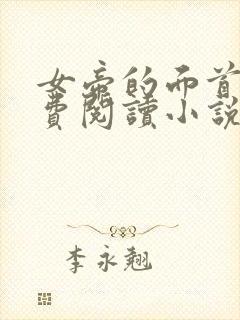 女帝的而首
費閱讀小說
李永翹